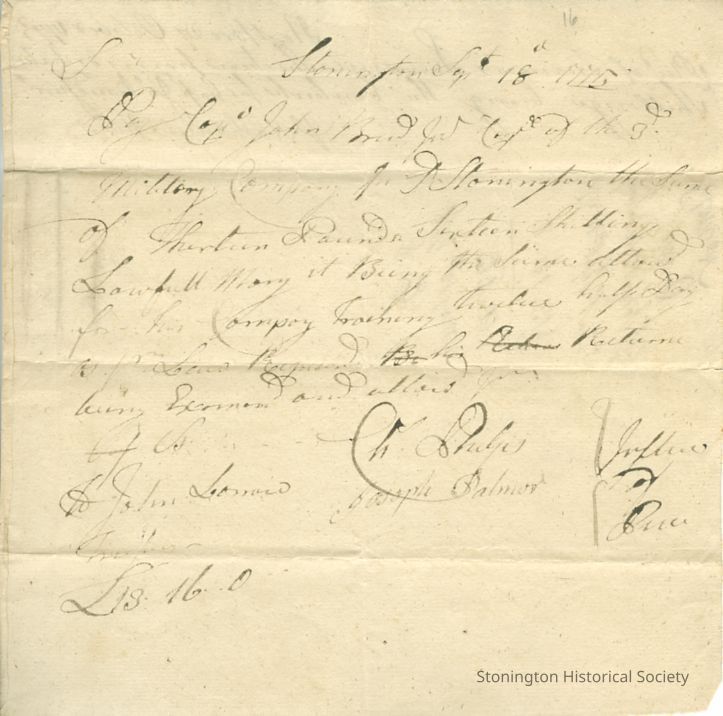 16
Sr Stonington Sept 18d 1775
Pay Capt John Breed Jur Capt of the 3d
Militery Company In Sd Stonington the Sume
of Therteen Pounds Sixteen Shillings
Lawfull Mony it Being the Sume allowd
for his Compay Training twelve half Day
as pr Law Requird Be his Returne
being Exomend and allowd pr
Us
Ch. Phelps Justice
To John Joseph Palmer of
Peec
£13. 16. 0
Stonington Historical Society